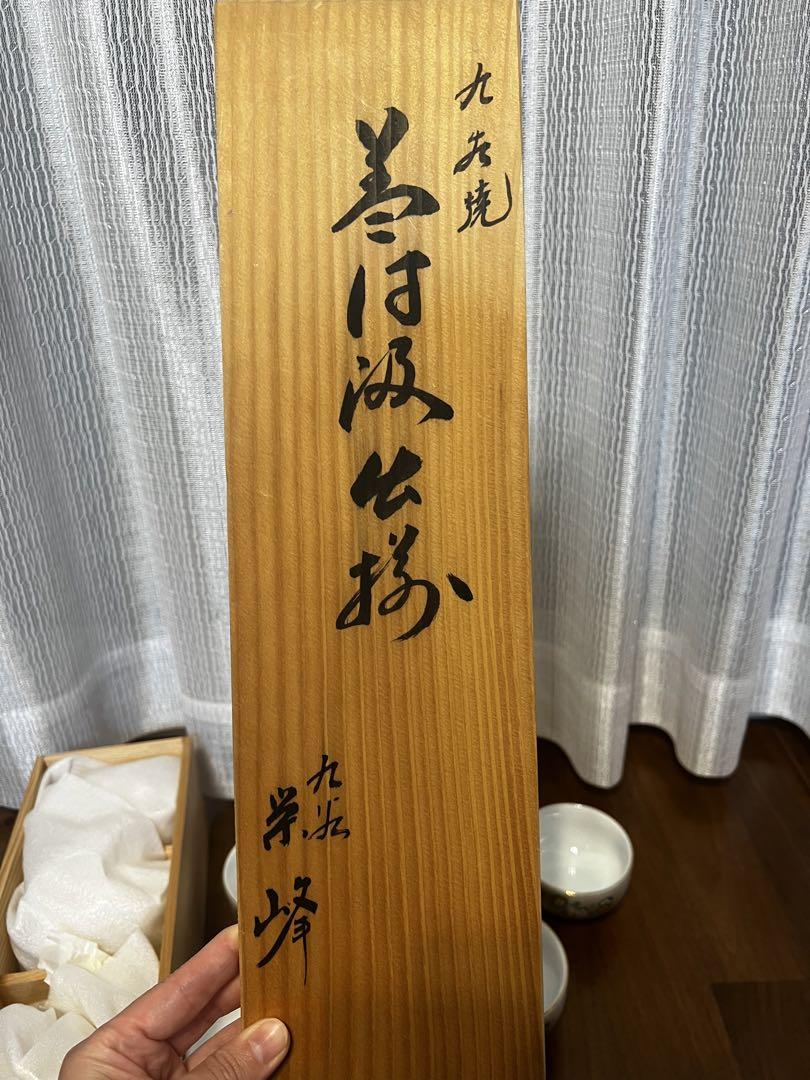 九谷焼
蓋付汲出揃
九谷
栄峰